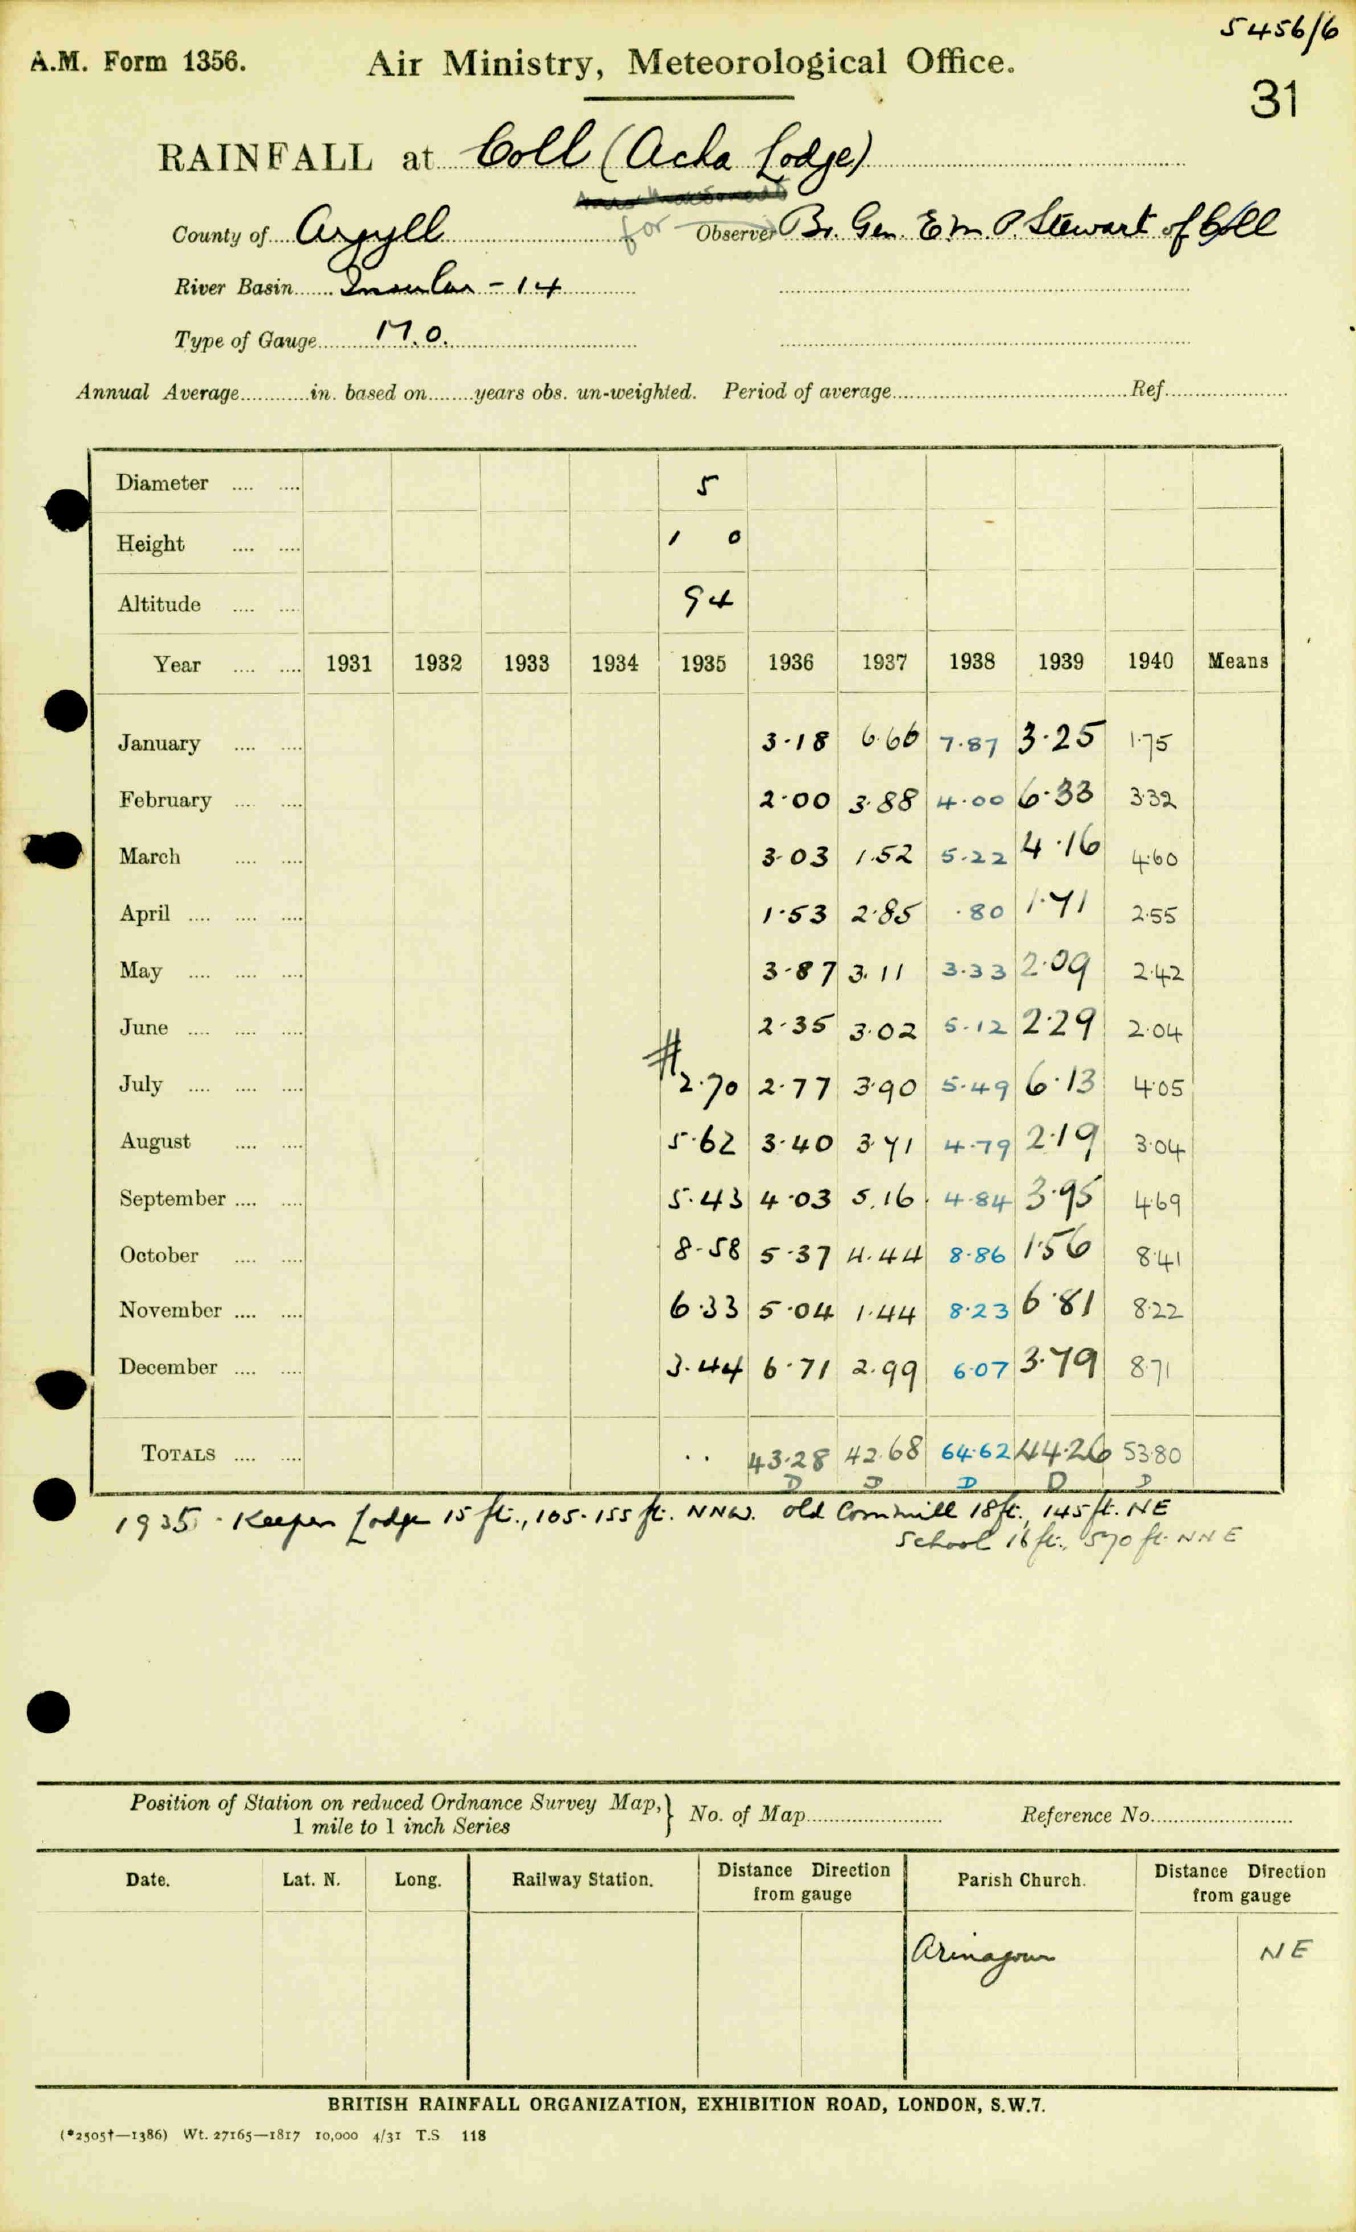 5456/6
A.M. Form 1356. Air Ministry, Meteorological Office.
31
RAINFALL at Coll (Acha Lodge)
County of Argyll for Observer Br. Gen. E.M.P. Stewart of Coll
River Basin Insular - 14
Type of Gauge M.O.
Annual Average in. based on years obs. un-weighted. Period of average Ref
Diameter 5
Height 1 0
Altitude 94
Year 1931 1932 1933 1934 1935 1936 1937 1938 1939 1940 Means
January 3·18 6·66 7·87 3·25 1·75
February 2·00 3·88 4·00 6·33 3·32
March 3·03 1·52 5·22 4·16 4·60
April 1·53 2·85 ·80 1·71 2·55
May 3·87 3·11 3·33 2·09 2·42
June 2·35 3·02 5·12 2·29 2·04
July #2·70 2·77 3·90 5·49 6·13 4·05
August 5·62 3·40 3·71 4·79 2·19 3·04
September 5·43 4·03 5·16 4·84 3·95 4·69
October 8·58 5·37 4·44 8·86 1·56 8·41
November 6·33 5·04 1·44 8·23 6·81 8·22
December 3·44 6·71 2·99 6·07 3·79 8·71
TOTALS .. 43·28 42·68 64·62 44·26 53·80
D D D D D
1935 - Keeper Lodge 15 ft., 105-155 ft. NNW. Old Cornmill 18 ft., 145 ft. NE
School 16 ft., 570 ft. NNE
Position of Station on reduced Ordnance Survey Map,
1 mile to 1 inch Series } No. of Map Reference No.
Date. Lat. N. Long. Railway Station. Distance Direction from gauge Parish Church. Distance Direction from gauge
Arinagour NE
BRITISH RAINFALL ORGANIZATION, EXHIBITION ROAD, LONDON, S.W.7.
(*2505†—1386) Wt. 27165—1817 10,000 4/31 T.S 118